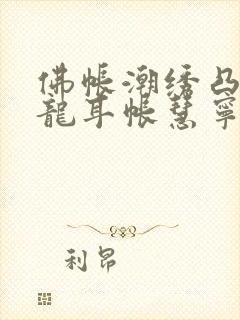 佛帐潮绣凸
龍耳帐慧寧
利昂